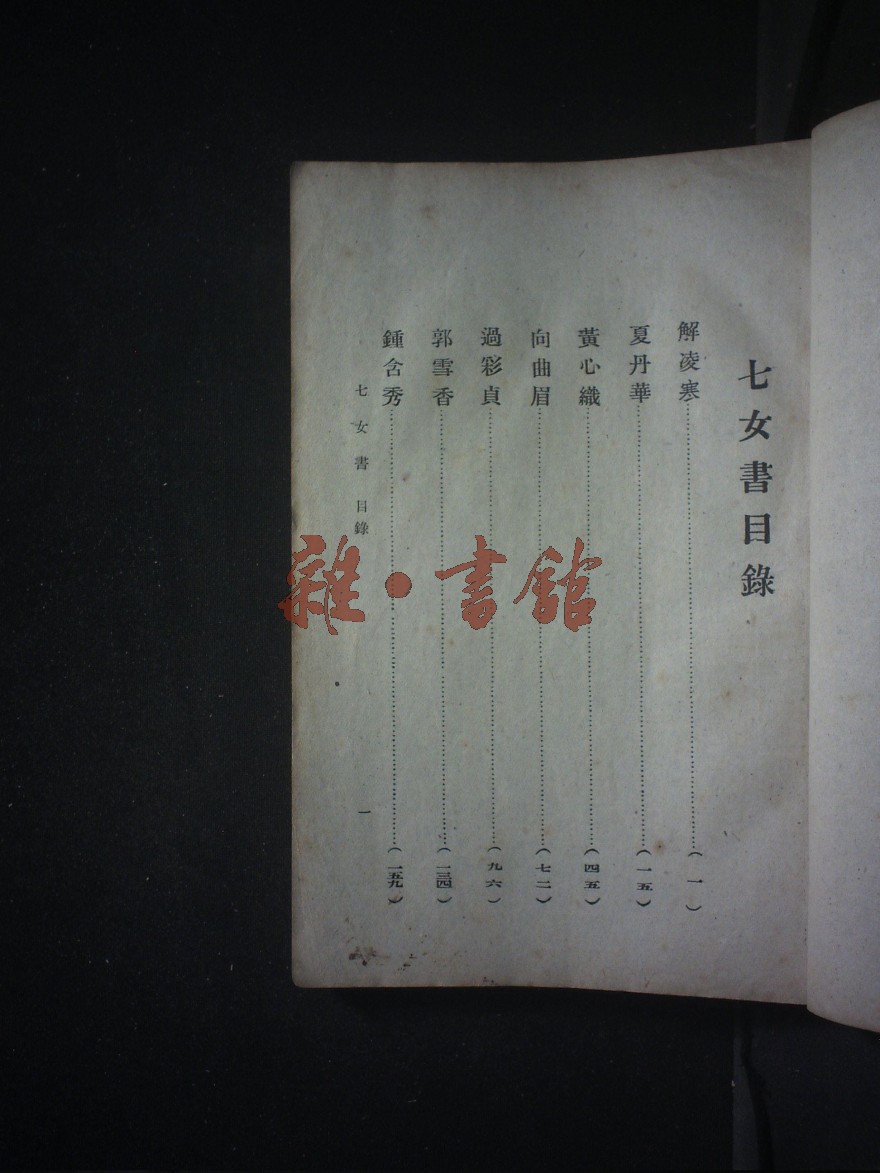 七女書目錄
解凌寒……（一）
夏丹華……（一五）
黃心織……（四五）
向曲眉……（七二）
過彩貞……（九六）
郭雪香……（一三四）
鍾含秀……（一五九）
七女書 目錄 一
雜·書館